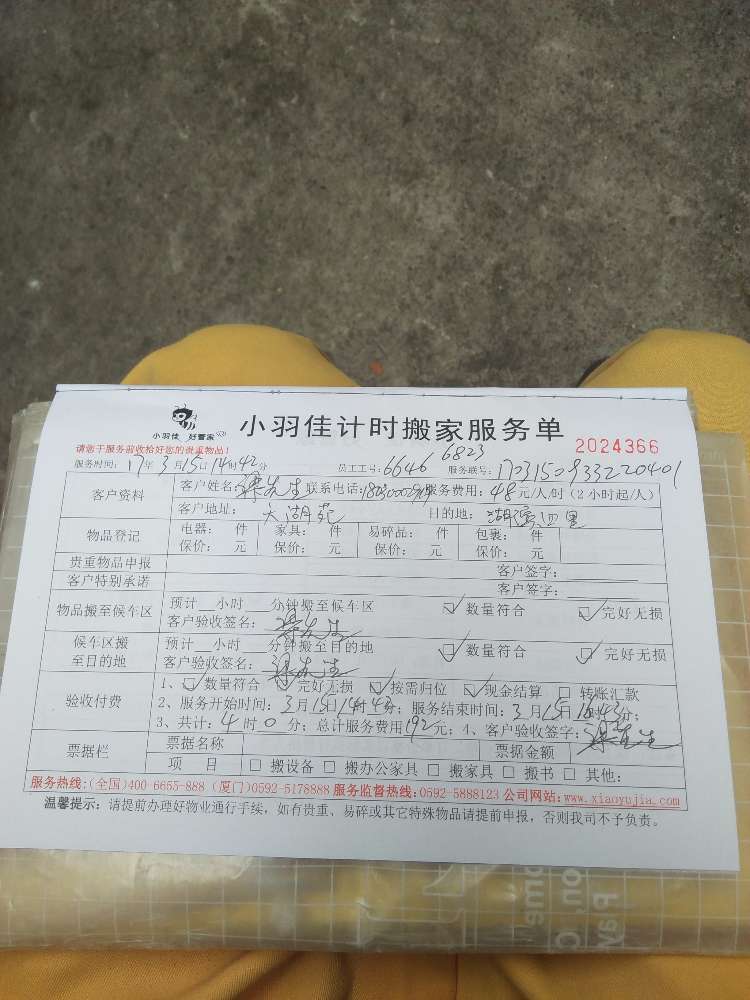 小羽佳 好管家
小羽佳计时搬家服务单
2024366
请您于服务前收拾好您的贵重物品!
服务时间: 17年3月15日14时42分 员工工号: 6646 6823 服务联号:
客户资料 客户姓名: 梁先生 联系电话: 服务费用: 48元/人/时 (2小时起/人)
客户地址: 天湖苑 目的地: 湖滨四里
物品登记 电器: 件 家具: 件 易碎品: 件 包裹: 件
保价: 元 保价: 元 保价: 元 保价: 元
贵重物品申报 客户签字:
客户特别承诺 客户签字:
物品搬至候车区 预计__小时___分钟搬至候车区 ☑ 数量符合 ☑ 完好无损
客户验收签名: 梁先生
候车区搬至目的地 预计__小时___分钟搬至目的地 ☑ 数量符合 ☑ 完好无损
客户验收签名: 梁先生
验收付费 1、☑ 数量符合 ☑ 完好无损 ☑ 按需归位 ☑ 现金结算 □ 转账汇款
2、服务开始时间: 3月15日14时43分; 服务结束时间: 3月15日16时43分;
3、共计: 4时0分; 总计服务费用192元; 1、客户验收签字: 梁先生
票据栏 票据名称 票据金额
项 目 □ 搬设备 □ 搬办公家具 □ 搬家具 □ 搬书 □ 其他:
服务热线:(全国)400-6655-888 (厦门)0592-5178888 服务监督热线:0592-5888123 公司网站:www.xiaoyujia.com
温馨提示: 请提前办理好物业通行手续, 如有贵重、易碎或其它特殊物品请提前申报, 否则我司不予负责。